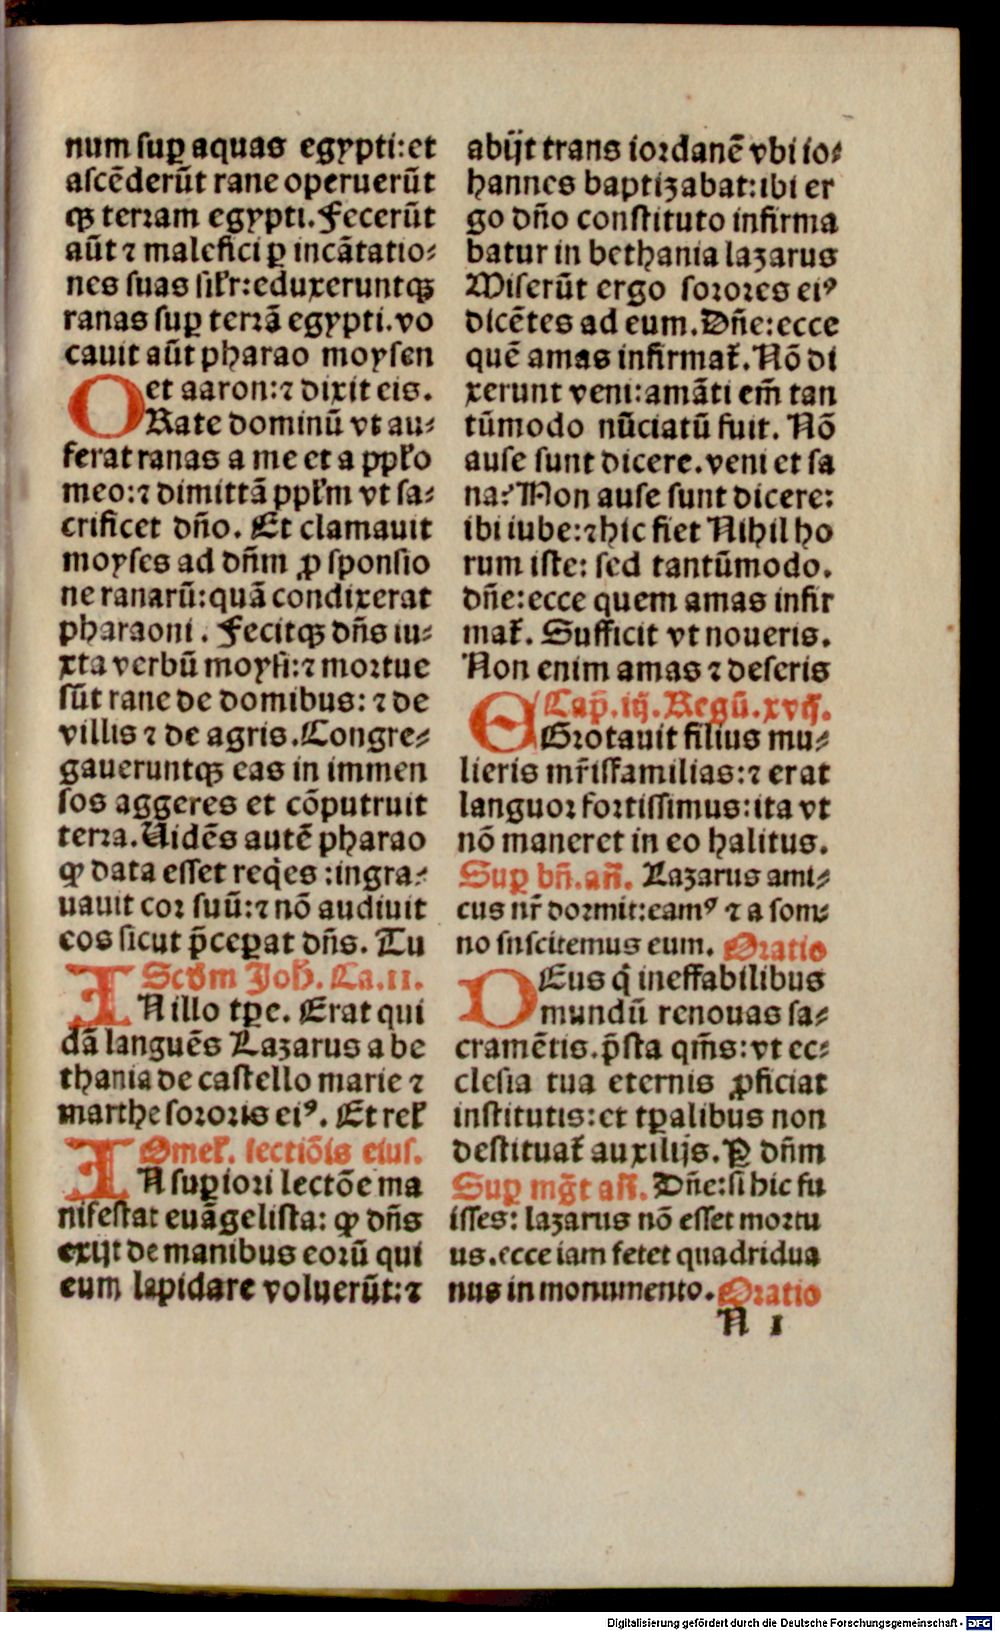 num suꝑ aquas egypti: et
ascēderūt rane operuerūt
qꝫ terram egypti. Fecerūt
aūt ⁊ malefici ꝑ incātatio⸗
nes suas siĺr: eduxeruntqꝫ
ranas suꝑ terrā egypti. vo
cauit aūt pharao moysen
et aaron: ⁊ dixit eis.
ORate dominū vt au⸗
ferat ranas a me et a ppĺo
meo: ⁊ dimittā ppĺm vt sa⸗
crificet dn̄o. Et clamauit
moyses ad dn̄m ꝓ sponsio
ne ranarū: quā condixerat
pharaoni. Fecitqꝫ dn̄s iu⸗
xta verbū moysi: ⁊ mortue
sūt rane de domibus: ⁊ de
villis ⁊ de agris. Congre⸗
gaueruntqꝫ eas in immen
sos aggeres et cōputruit
terra. Uidēs autē pharao
ꝙ data esset req̇es: ingra⸗
uauit cor suū: ⁊ nō audiuit
eos sicut p̄ceꝑat dn̄s. Tu
Scḋm Joh̄. Ca. 11.
IN illo tꝑe. Erat qui
dā languēs Lazarus a be
thania de castello marie ⁊
marthe sororis eiꝰ. Et reĺ
Omeĺ. lectiōis eius.
IN suꝑiori lectōe ma
nifestat euāgelista: ꝙ dn̄s
exijt de manibus eorū qui
eum lapidare voluerūt: ⁊
abijt trans iordanē vbi io⸗
hannes baptizabat: ibi er
go dn̄o constituto infirma
batur in bethania lazarus
Miserūt ergo sorores eiꝰ
dicētes ad eum. Dn̄e: ecce
quē amas infirmat̄. Nō di
xerunt veni: amāti em̄ tan
tūmodo nūciatū fuit. Nō
ause sunt dicere. veni et sa
na? Non ause sunt dicere:
ibi iube: ⁊ hic fiet Nihil ho
rum iste: sed tantūmodo.
dn̄e: ecce quem amas infir
mat̄. Sufficit vt noueris.
Non enim amas ⁊ deseris
Cap̄. iij. Regū. xvij.
EGrotauit filius mu⸗
lieris mr̄isfamilias: ⁊ erat
languor fortissimus: ita vt
nō maneret in eo halitus.
Suꝑ bn̄. an̄. Lazarus ami⸗
cus nr̄ dormit: eamꝰ ⁊ a som⸗
no snscitemus eum. Oratio
DEus q̇ ineffabilibus
mundū renouas sa⸗
cramētis. p̄sta qm̄s: vt ec⸗
clesia tua eternis ꝓficiat
institutis: et tꝑalibus non
destituat̄ auxilijs. Ꝑ dn̄m
Suꝑ mḡt an̄. Dn̄e: si hic fu
isses: lazarus nō esset mortu
us. ecce iam fetet quadridua
nus in monumento. Oratio
N 1
Digitalisierung gefördert durch die Deutsche Forschungsgemeinschaft - DFG